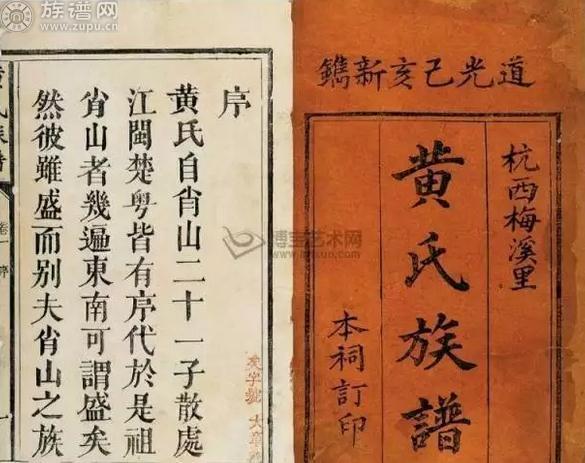 族谱网
www.zupu.cn
道光己亥新鐫
杭西梅溪里
黄氏族譜
本祠訂印
博宝艺术网
序
黄氏自肖山二十一子散處
江閩楚粤皆有序代於是祖
肖山者幾遍東南可謂盛矣
然彼雖盛而别夫肖山之族
卷一
序